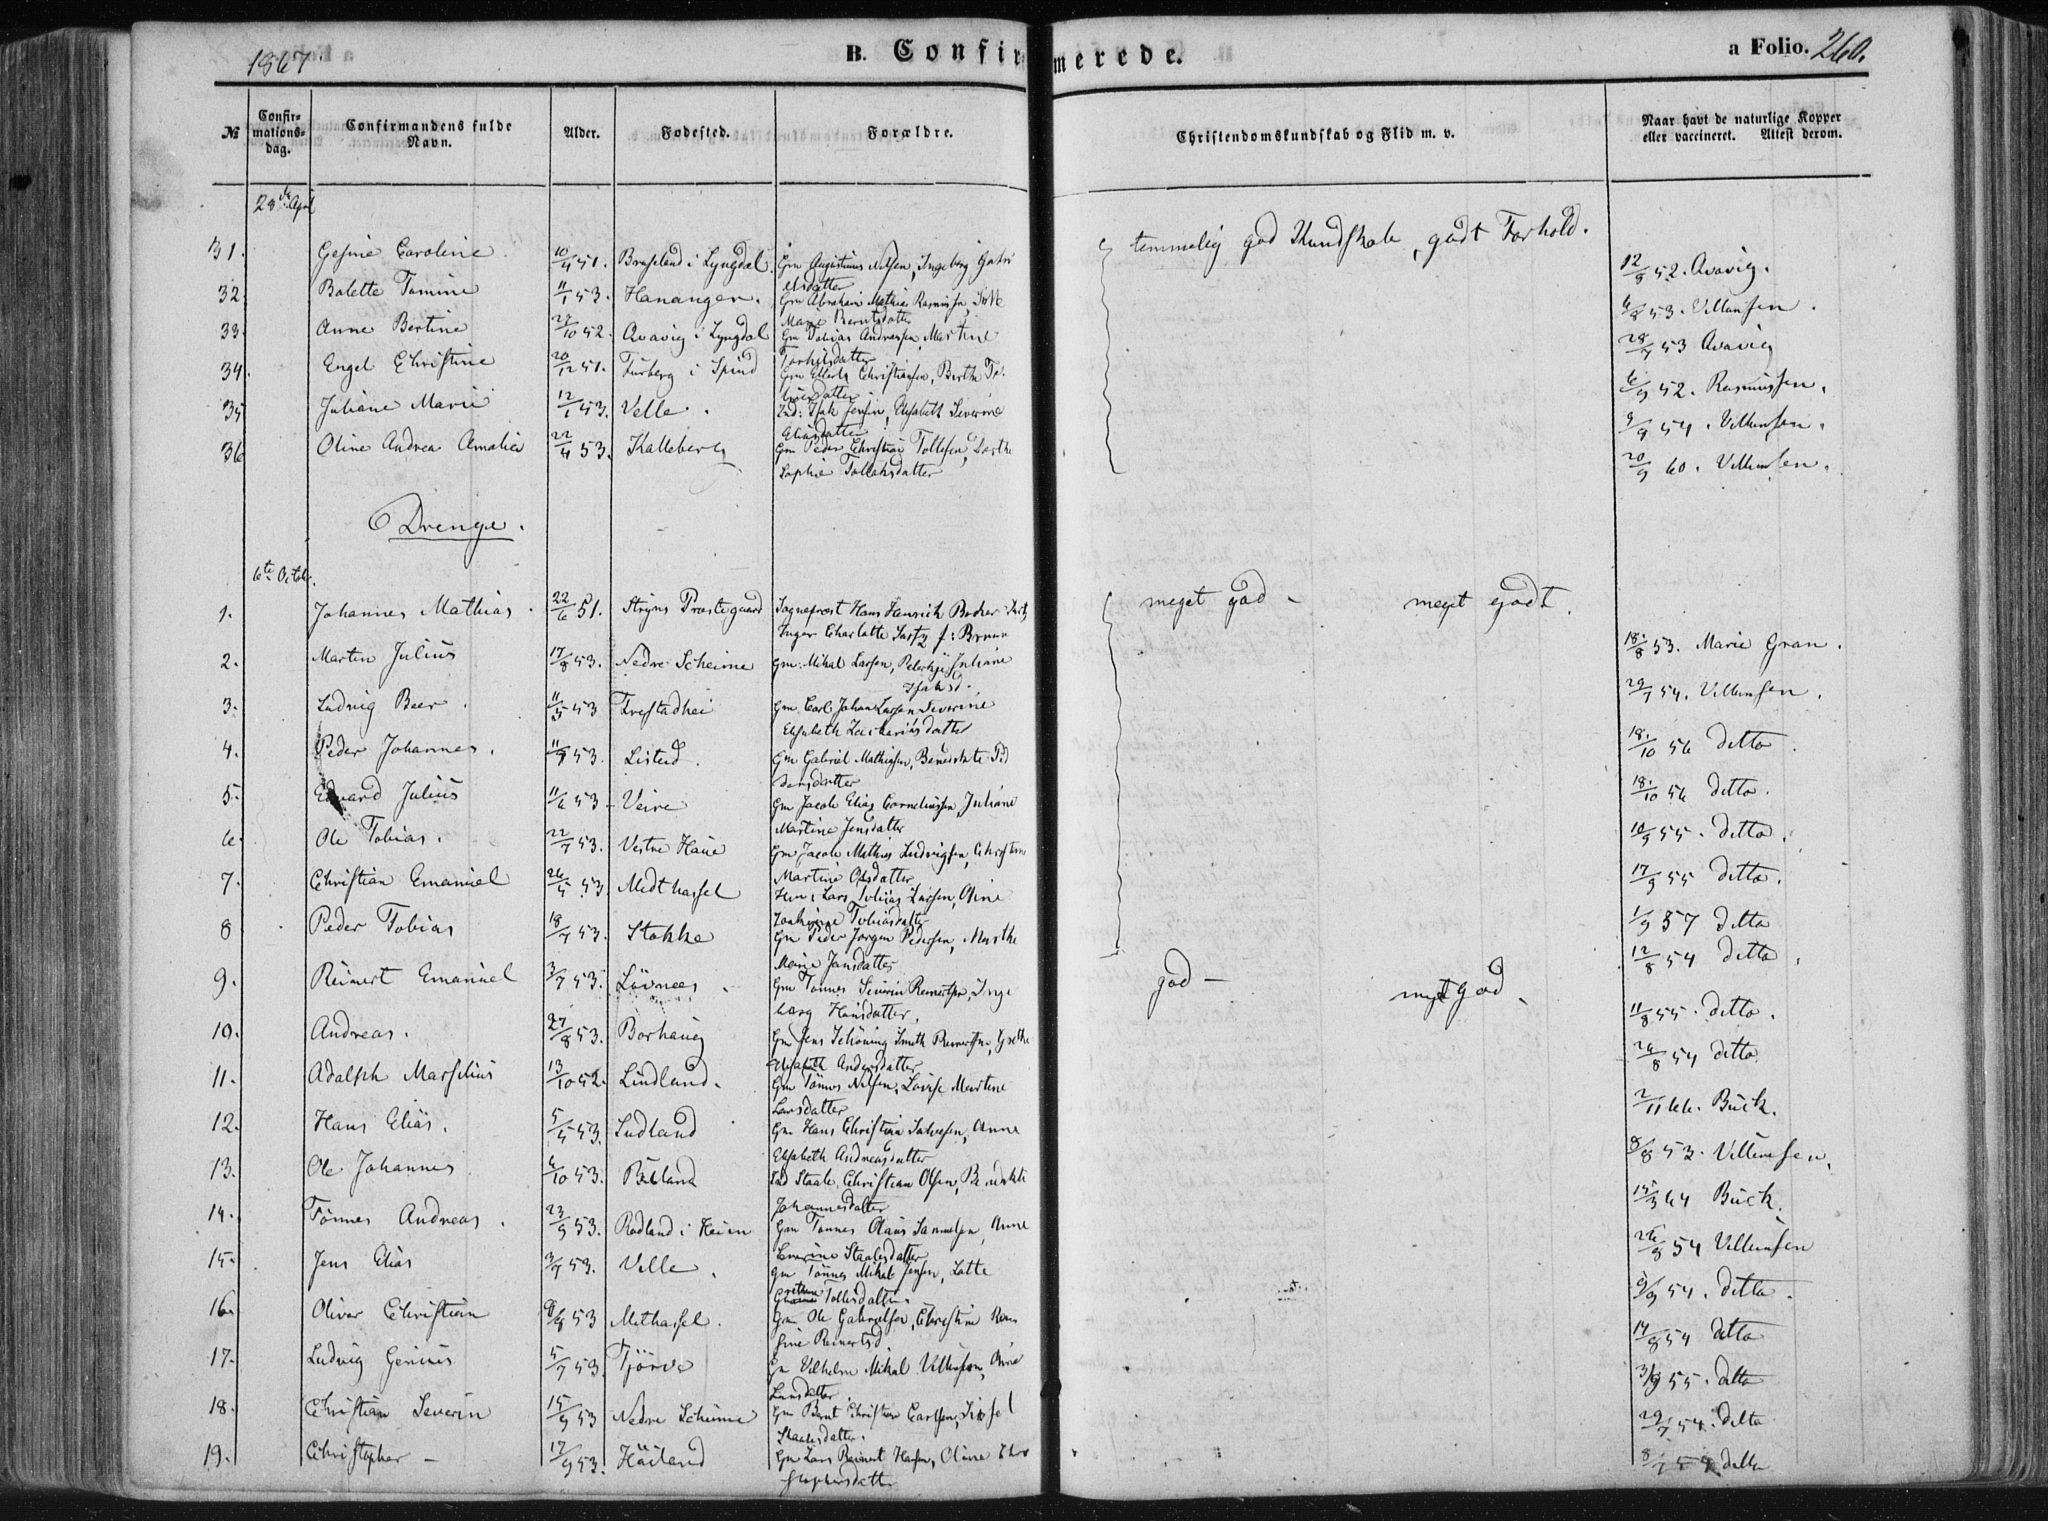 1867
B. Confirmerede.
a Folio. 260.
№
Confirmationsdag.
Confirmandens fulde Navn.
Alder.
Fødested.
Forældre.
Christendomskundskab og Flid m. v.
Naar havt de naturlige Kopper eller vaccineret. Attest derom.
28de April
31. Gesine Caroline 10/4 51. Braseland i Lyngdal Gm Augustinus Nilsen, Ingeborg Gabrielsdatter temmelig god Kundskab, godt Forhold. 12/8 52. Avavig.
32. Bolette Tomine 11/1 53. Hananger. Gm Abraham Mathias Rasmussen, Marie Berntsdatter 6/8 53. Villumsen.
33. Anne Bertine 27/10 52. Avavig i Lyngdal Gm Tobias Andreassen, Martine Torkilsdatter 28/7 53 Avavig
34. Engel Christine 20/12 51. Furberg i Spind Gm Ellert Christiansen, Berthe 6/9 52. Rasmussen.
35 Juliane Marie 12/1 53. Velle. Ind: Isak Jensen, Elisabeth Severine Eliasdatter 9/9 54. Villumsen.
36 Oline Andrea Amalia 22/4 53. Kalleberg Gm Peder Christian Tollefsen, Dorthe Sophie Tollaksdatter 20/9 60. Villumsen.
Drenge.
6te Octob.
1. Johannes Mathias. 22/6 51. Stryns Prestegaard Sognepræst Hans Henrich Inger Charlotte f: Bruun meget god - meget godt.
18/8 53. Marie Gran.
2. Martin Julius 17/8 53. Nedre Scheime Gm: Mikal Larsen, Juliane Isaksd. 29/7 54. Villumsen.
3. Ludvig Beer. 11/5 53 Frestadhei Gm Carl Johan Larsen Severine Elisabeth Zachariasdatter 18/10 56 ditto.
4. Peder Johannes. 11/9 53. Listeid. Gm Gabriel Mathiassen, Benedikte Pedersdatter 18/10 56 ditto.
5. Edvard Julius 11/6 53 Veire Gm Jacob Elias Corneliussen, Juliane Martine Jensdatter 10/9 55. ditto.
6. Ole Tobias. 22/7 53. Vestre Haue Gm Jacob Mathias Ludvigsen, Christine Martine Olsdatter 17/9 55 ditto.
7. Christian Emanuel 26/5 53 Midthassel Lars Tobias Larsen, Oline Tobiasdatter 1/9 57 ditto
8 Peder Tobias 18/7 53. Stokke Gm Peder Jørgen Pedersen, Marthe Marie Jansdatter 12/8 54 ditto.
9. Reinert Emanuel 3/7 53. Løvnees. Gm Tønnes Severin Reinertsen, Ingeborg Hansdatter. god - meget god. 11/8 55. ditto.
10. Andreas. 27/8 53. Borhaug Gm Jens Schöning Smith Reinertsen, Grethe Elisabeth Andersdatter 26/8 54 ditto
11. Adolph Marselius 13/10 52. Lindland. Gm Tønnes Nilsen, Lovise Martine Larsdatter 2/11 66. Buck.
12. Hans Elias. 5/5 53. Ludland Gm Hans Christian Salvesen, Anne Elisabeth Andreasdatter 8/8 53. Villumsen.
13. Ole Johannes 6/10 53. Staale Christian Olsen, Benedikte Johannesdatter 15/3 64 Buck.
14. Tønnes Andreas. 23/9 53. Rødland i Heien Gm Tønnes Olaus Samuelsen, Anne Severine Staalesdatter 26/8 54 Villumsen
15. Jens Elias 3/7 53. Velle. Gm Tønnes Mikal Jensen, Lotte Tollesdatter 9/9 54. ditto.
16. Oliver Christian 8/8 53 Methassel. Gm Ole Gabrielsen, Christine Reinertsd 14/8 54 ditto
17. Ludvig Genius 5/7 53. Tjørve Gm Vilhelm Mikal Villumsen, Anne Larsdatter 3/9 55. ditto
18. Christian Severin 15/9 53 Nedre Scheime Gm Bernt Christian Carlsen, Sissel Staalesdatter. 29/7 54. ditto
19. Christopher - 17/9 53. Häiland Gm Lars Reinert Hansen, Oline Christophersdatter 8/7 54 ditto